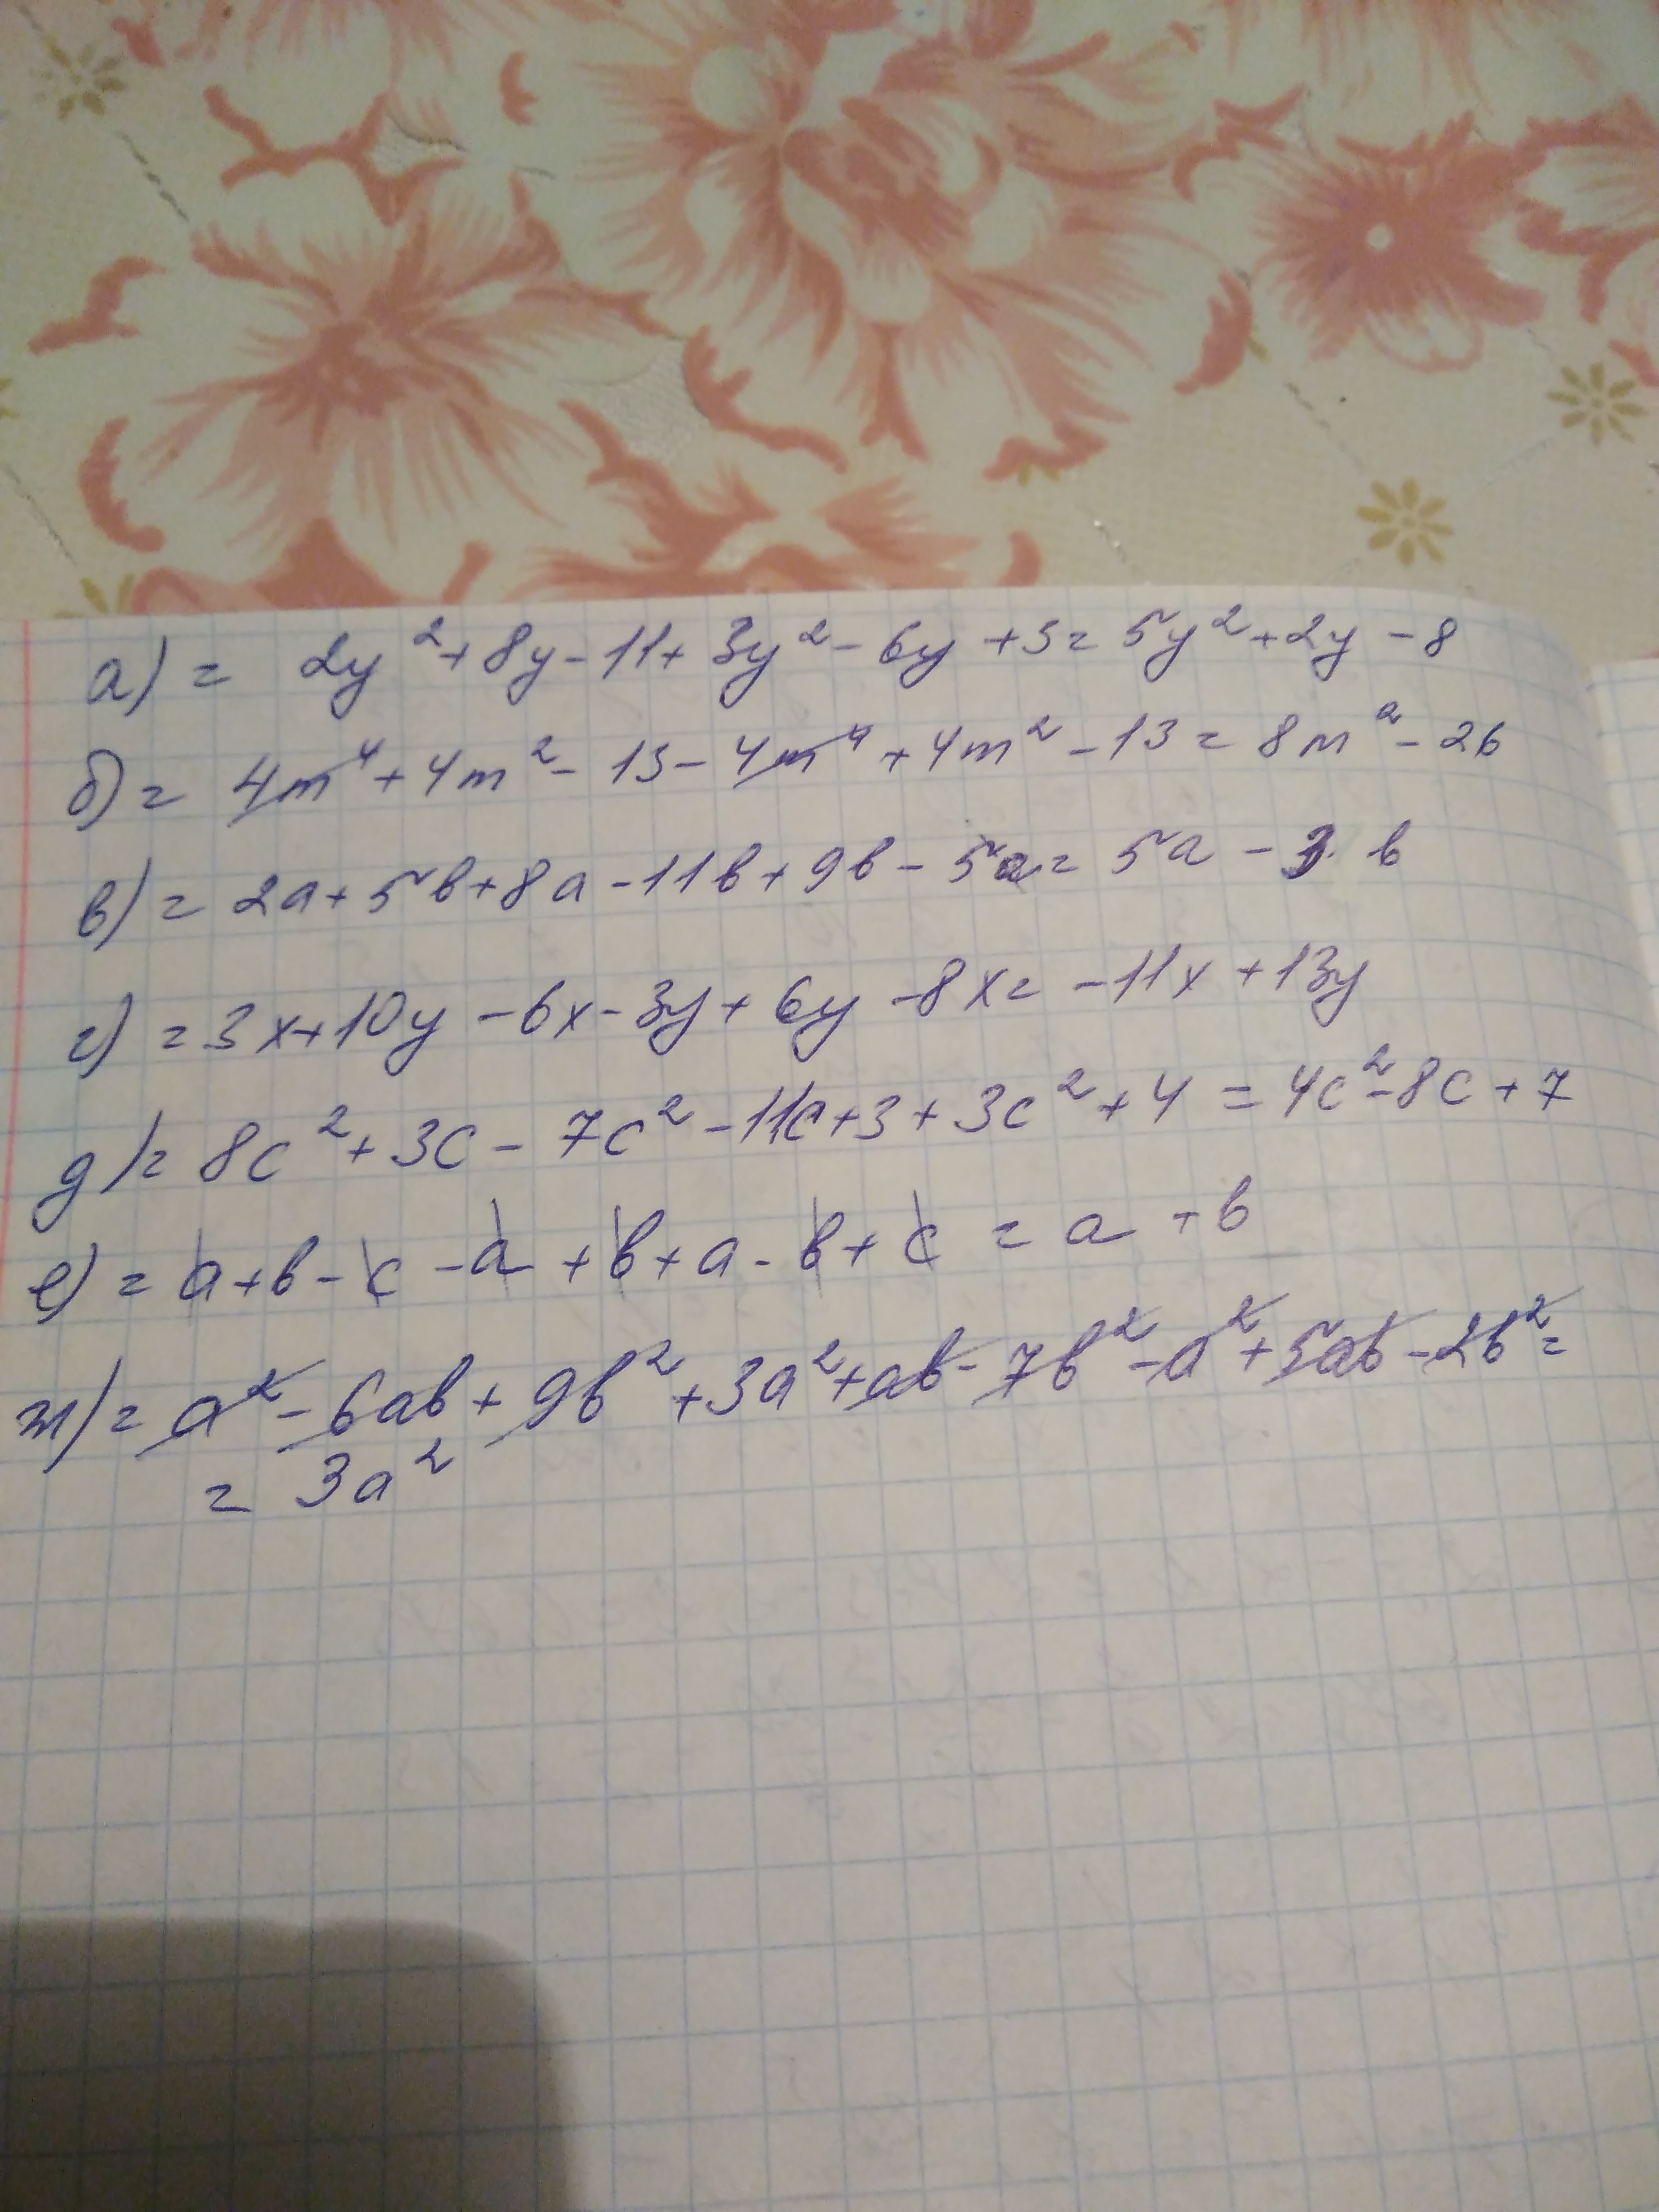 а) = 2y² + 8y - 11 + 3y² - 6y + 3 = 5y² + 2y - 8
б) = 4m⁴ + 4m² - 13 - 4m⁴ + 4m² - 13 = 8m² - 26
в) = 2a + 5b + 8a - 11b + 9b - 5a = 5a - 3 b
г) = 3x + 10y - 6x - 3y + 6y - 8x = -11x + 13y
д) = 8c² + 3c - 7c² - 11c + 3 + 3c² + 4 = 4c² - 8c + 7
е) = a + b - c - a + b + a - b + c = a + b
ж) = a² - 6ab + 9b² + 3a² + ab - 7b² - a² + 5ab - 2b² =
= 3a²